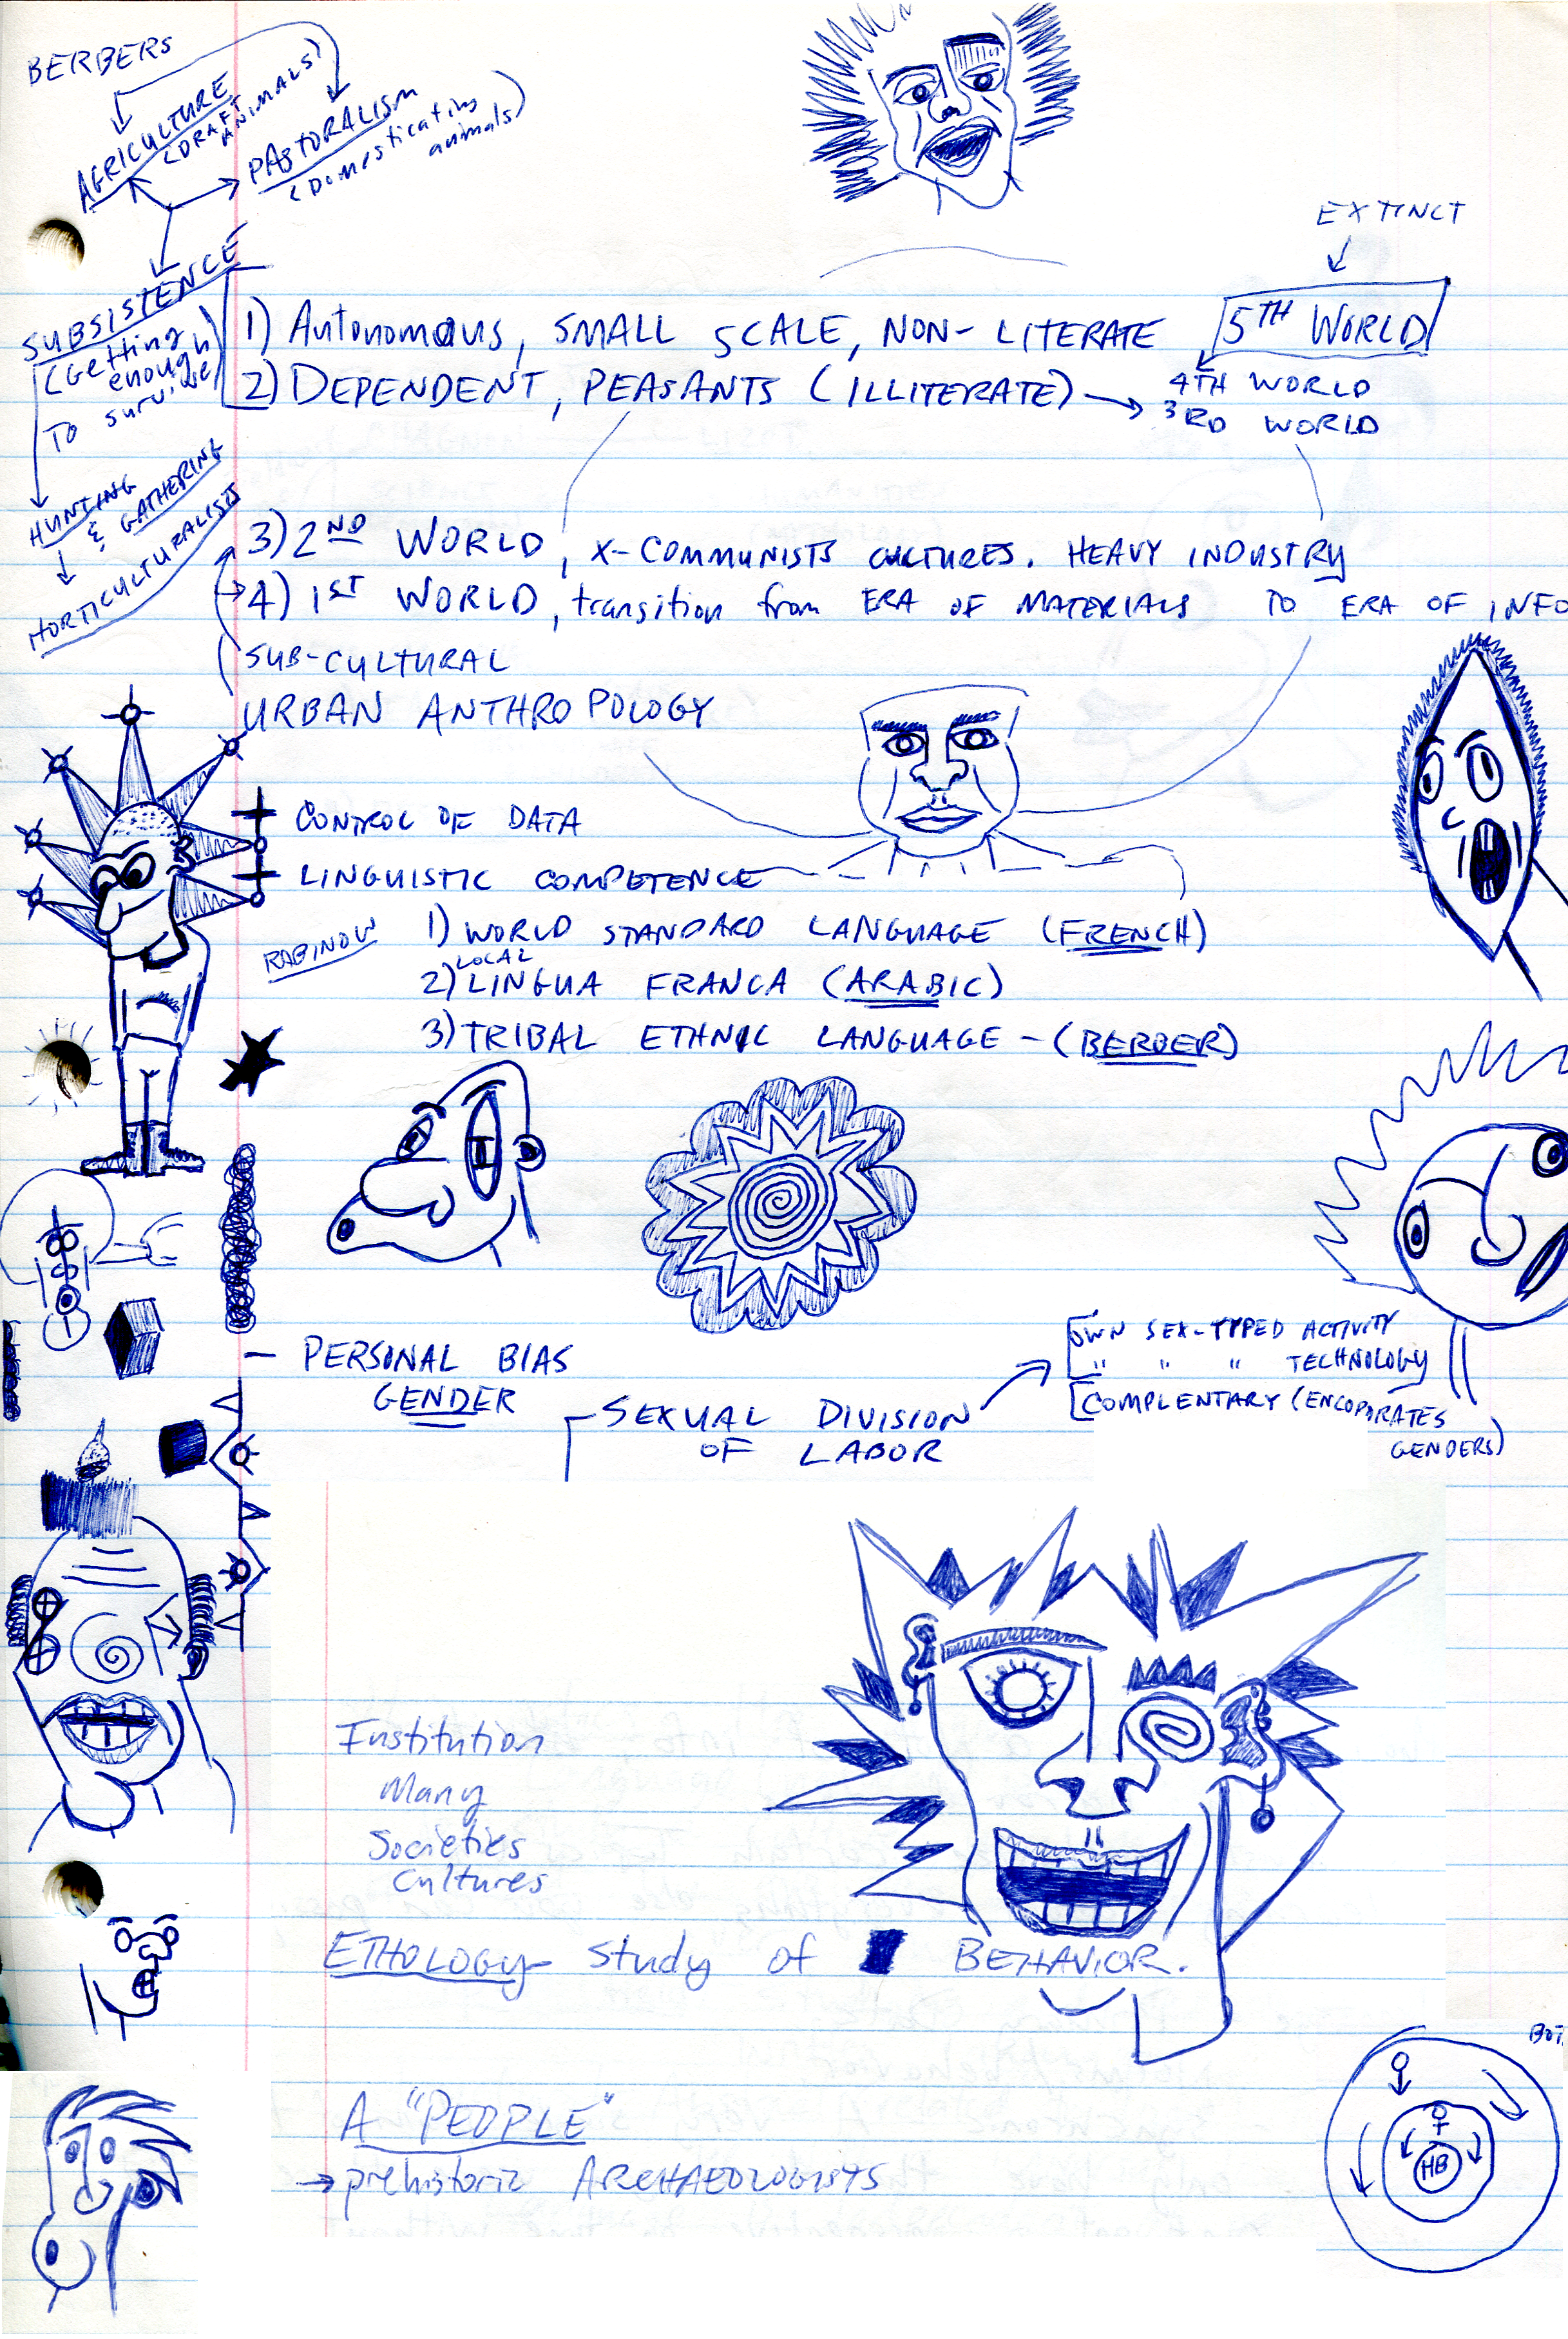 BERBERS
AGRICULTURE
(DRAFT ANIMALS)
PASTORALISM
(Domesticating animals)
EXTINCT
SUBSISTENCE
(Getting
enough
To survive)
1) Autonomous, SMALL SCALE, NON-LITERATE
5TH WORLD
2) DEPENDENT, PEASANTS (ILLITERATE)
4TH WORLD
3RD WORLD
HUNTING
& GATHERING
HORTICULTURALISTS
3) 2ND WORLD, X-COMMUNISTS CULTURES. HEAVY INDUSTRY
4) 1ST WORLD, transition from ERA OF MATERIALS TO ERA OF INFO
SUB-CULTURAL
URBAN ANTHROPOLOGY
CONTROL OF DATA
LINGUISTIC COMPETENCE
RABINOW
1) WORLD STANDARD LANGUAGE (FRENCH)
LOCAL
2) LINGUA FRANCA (ARABIC)
3) TRIBAL ETHNIC LANGUAGE - (BERBER)
OWN SEX-TYPED ACTIVITY
" " " TECHNOLOGY
COMPLENTARY (ENCOPORATES
GENDERS)
- PERSONAL BIAS
GENDER
SEXUAL DIVISION
OF LABOR
Institution
Many
Societies
Cultures
ETHOLOGY- Study of BEHAVIOR.
BOT
A "PEOPLE"
→ prehistoric ARCHAEOLOGISTS
HB